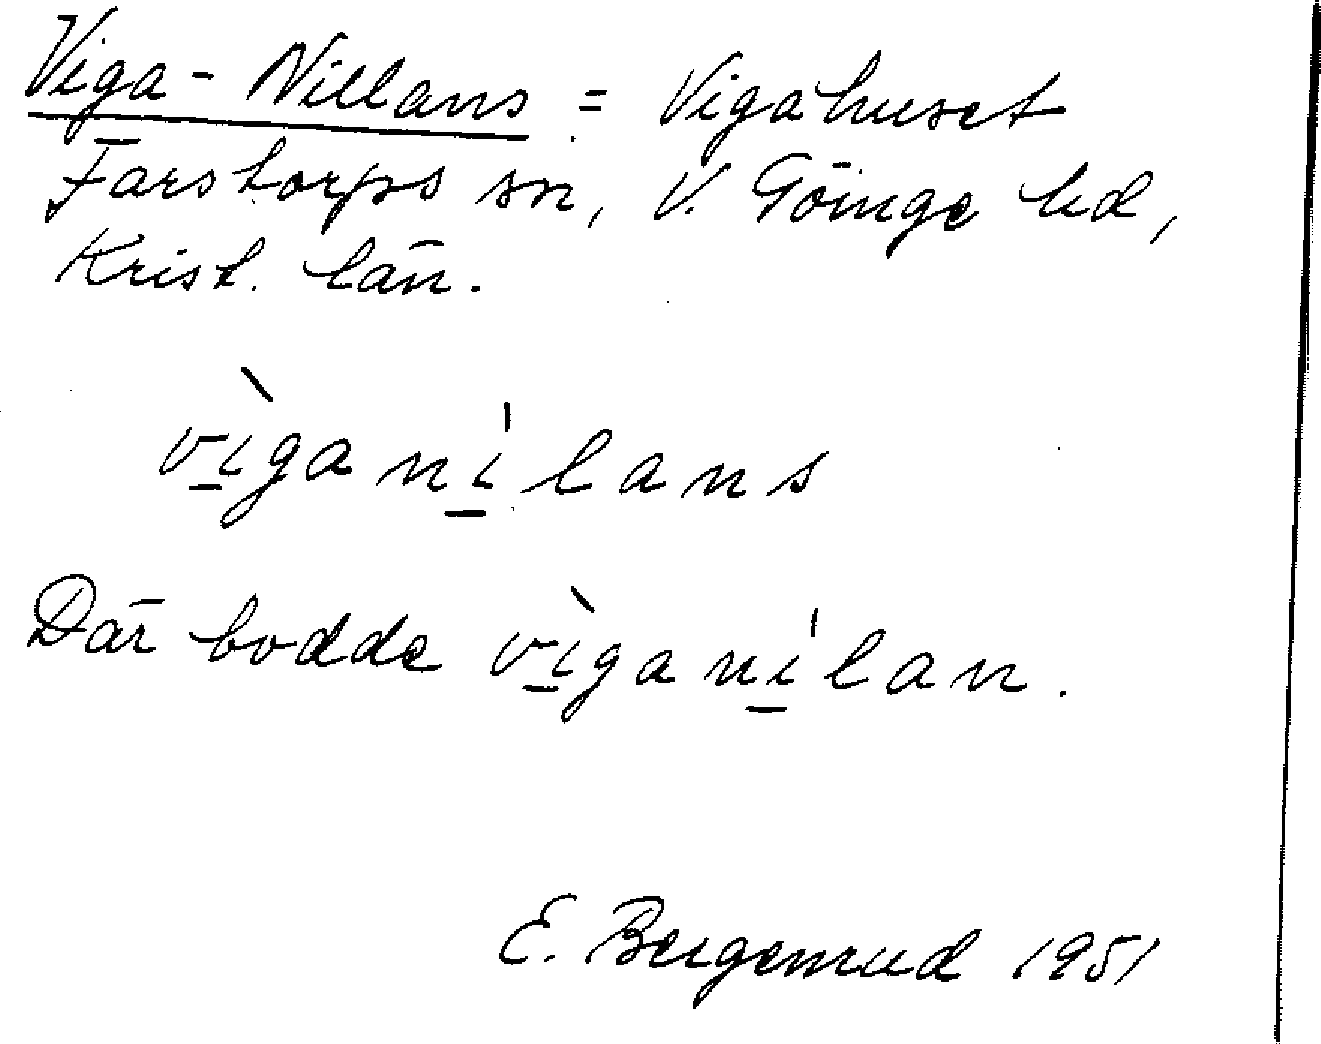 Viga-Nillans = Vigahuset
Farstorps sn, V. Göinge hd,
Krist. län.
vì̱ganí̱lans
Där bodde vì̱ganí̱lan.
E. Bergenrud 1951